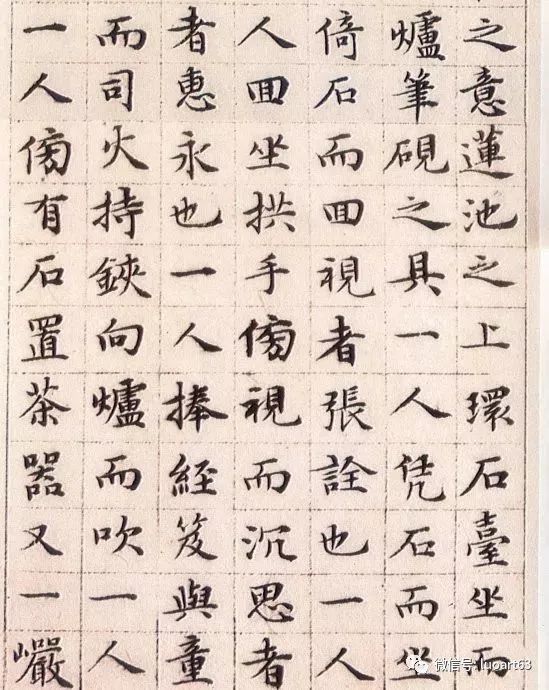 之意蓮池之上環石臺坐而
爐筆硯之具一人凭石而坐
倚石而回視者張詮也一人
人回坐拱手傍視而沉思者
者惠永也一人捧經笈與童
而司火持鋏向爐而吹一人
一人傍有石置茶器又一巖
微信号: luoart63